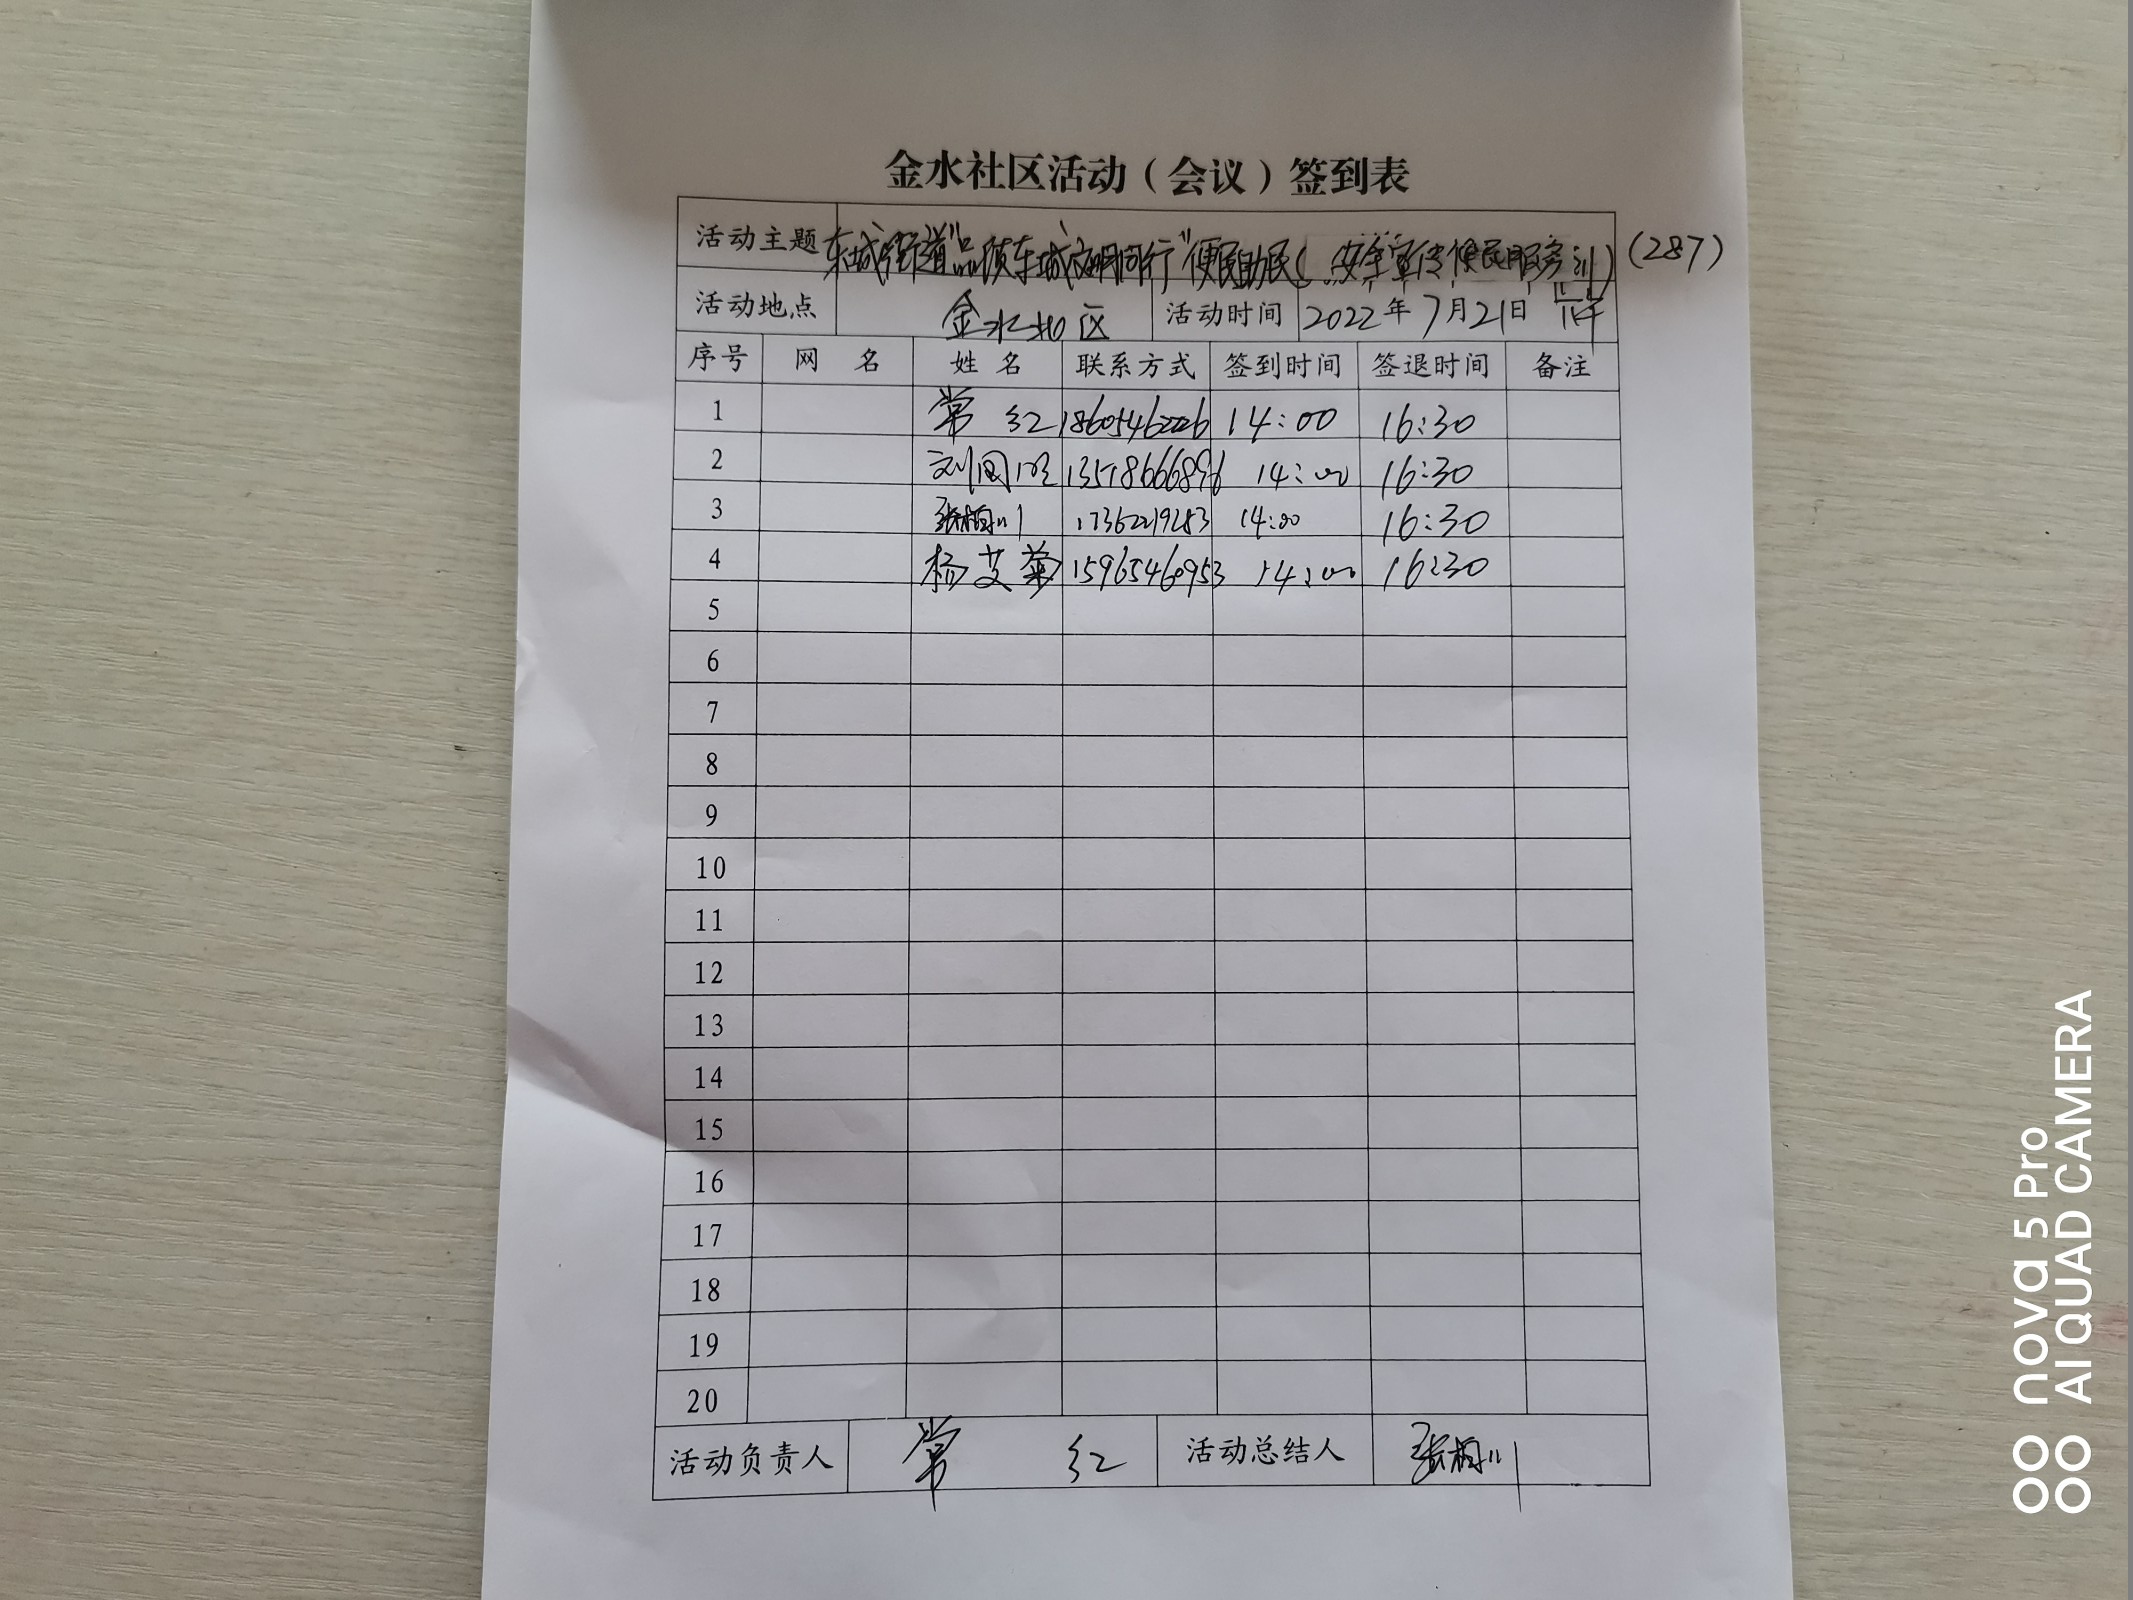 金水社区活动（会议）签到表
活动主题 东城街道"品质东城文明同行"便民助民(安全宣传便民服务) (287)
活动地点 金水社区 活动时间 2022年7月21日 下午
序号 网 名 姓 名 联系方式 签到时间 签退时间 备注
1 常 红 18605462226 14:00 16:30
2 刘国 14:00 16:30
3 14:00 16:30
4 杨艾菊 15965460953 14:00 16:30
5
6
7
8
9
10
11
12
13
14
15
16
17
18
19
20
活动负责人 常 红 活动总结人
nova 5 Pro
AI QUAD CAMERA